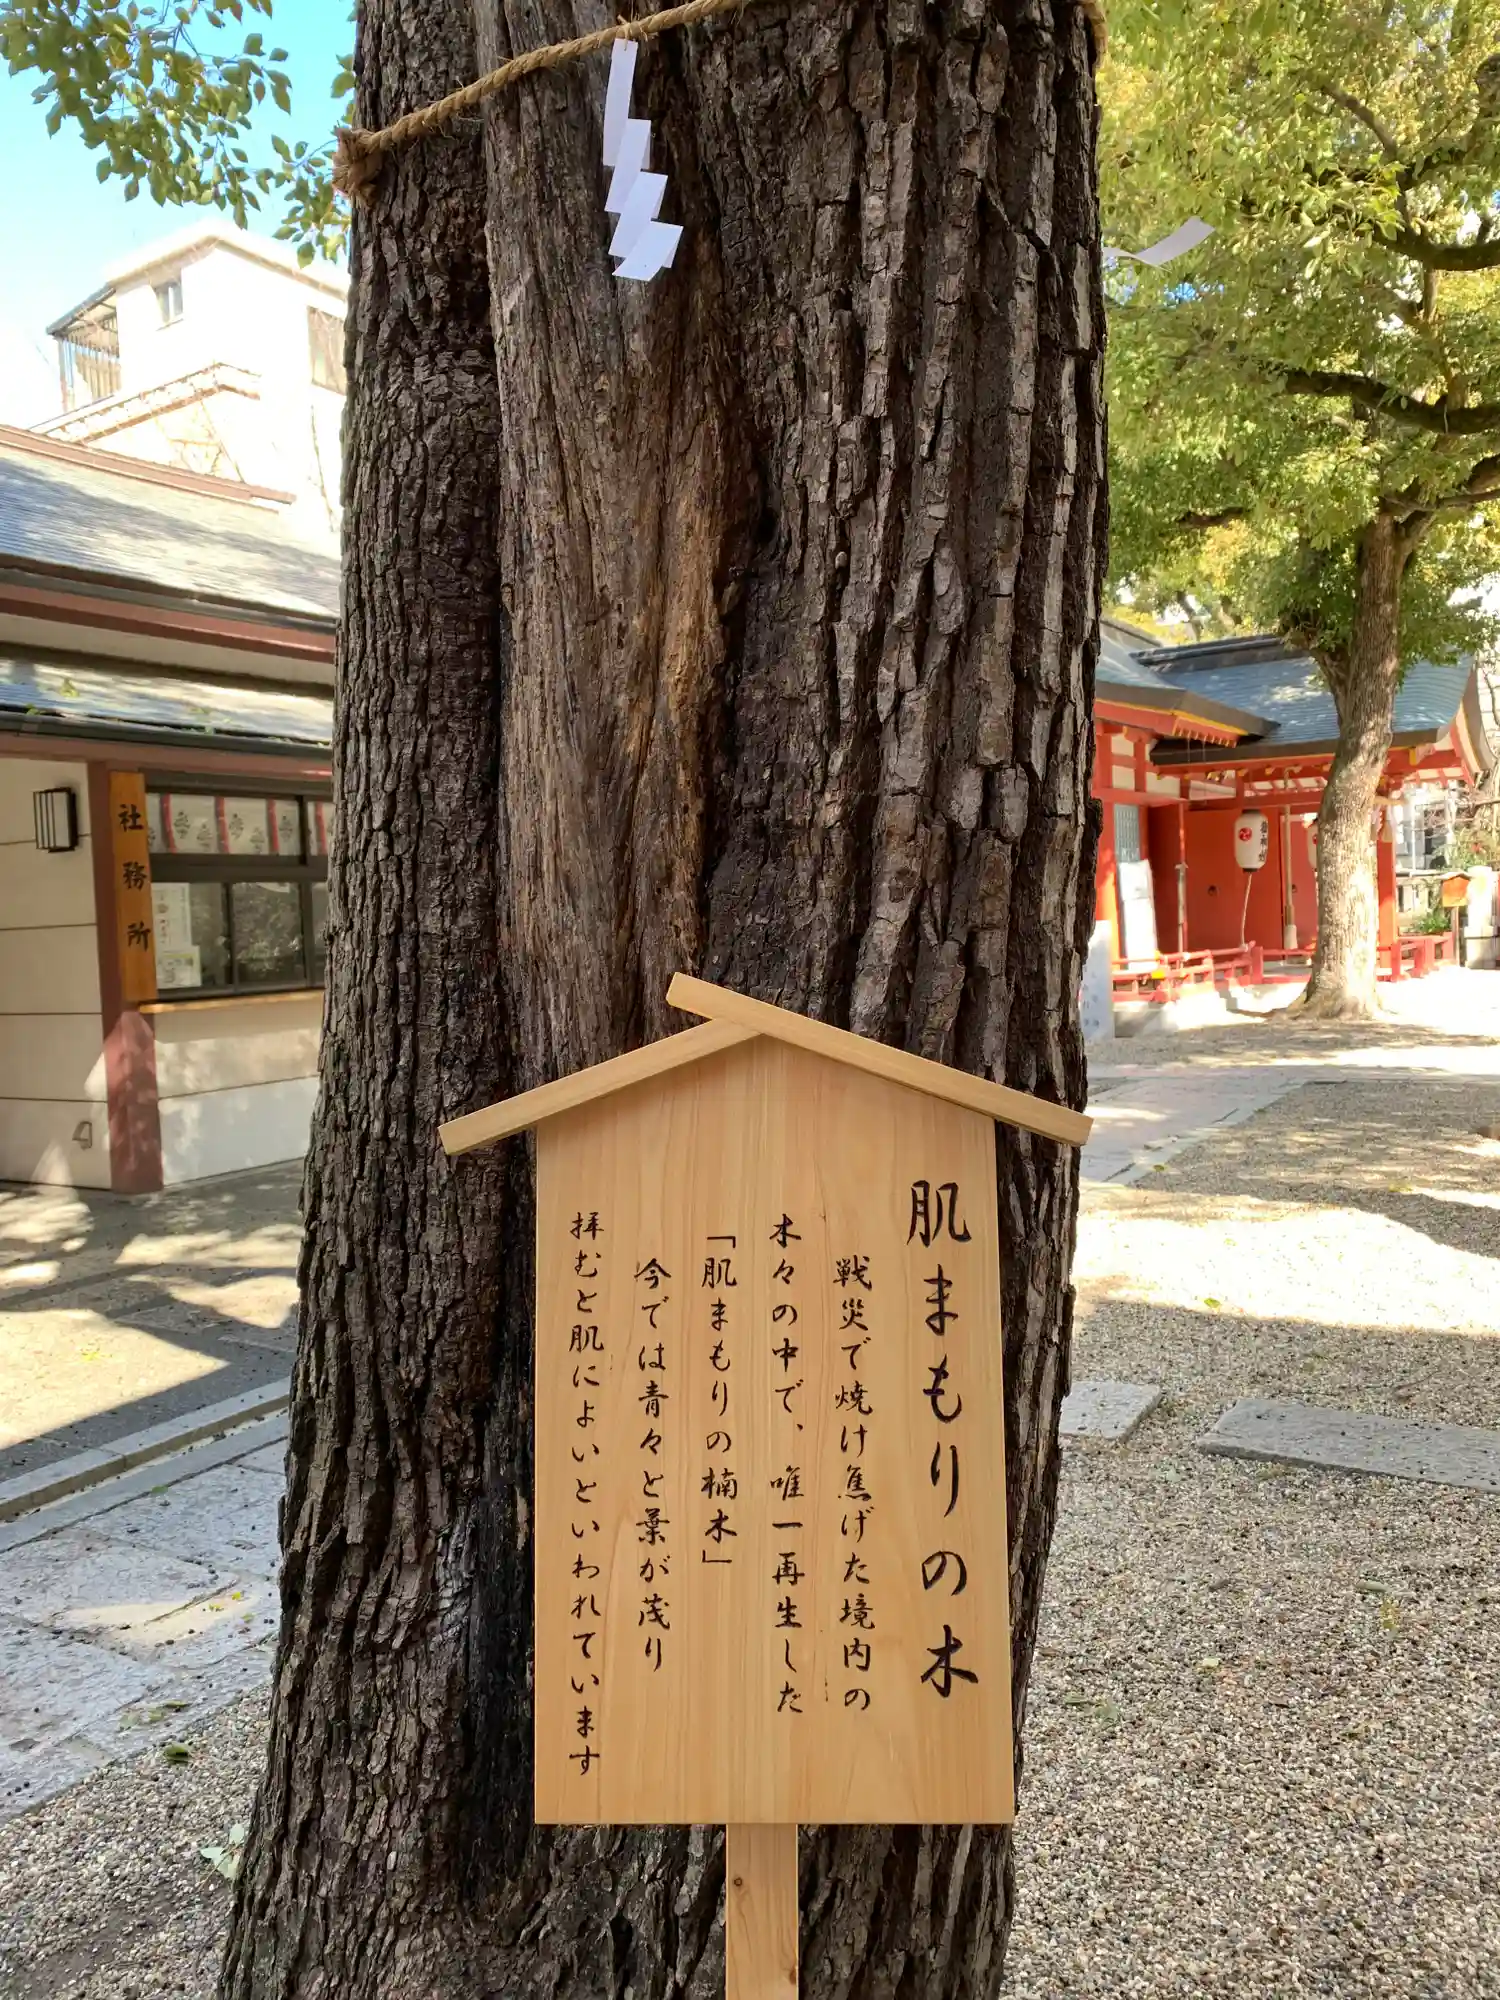 肌まもりの木
戦災で焼け焦げた境内の
木々の中で、唯一再生した
「肌まもりの楠木」
今では青々と葉が茂り
拝むと肌によいといわれています
社務所